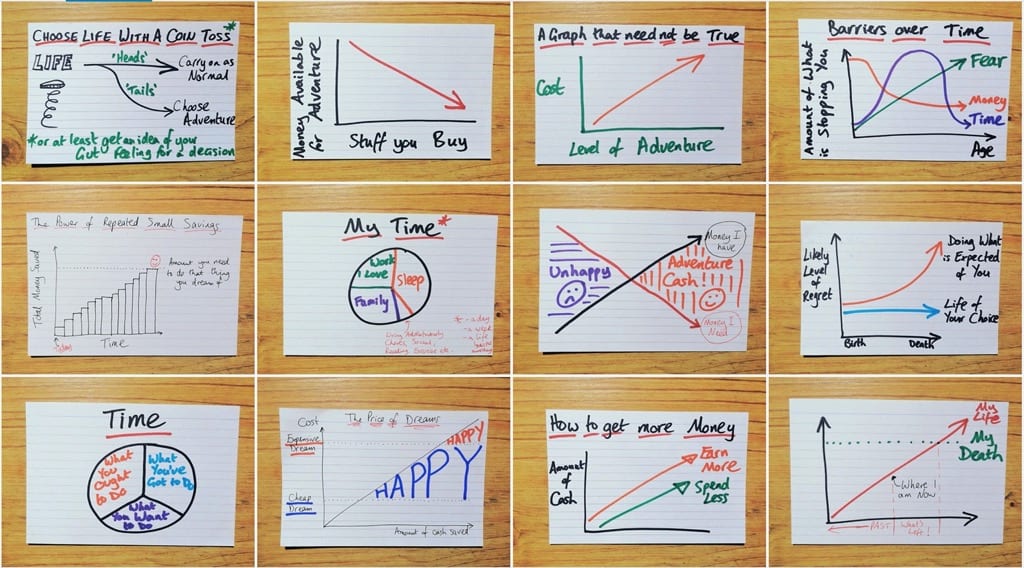 CHOOSE LIFE WITH A COIN TOSS*
LIFE
'Heads'
Carry on as
Normal
'Tails'
Choose
Adventure
*or at least get an idea of your
Gut Feeling for a decision
Money Available
for Adventure
Stuff you Buy
A Graph that need not be True
Cost
Level of Adventure
Barriers over Time
Amount of What
is Stopping You
Fear
Money
Time
Age
The Power of Repeated Small Savings
Total Money Saved
Amount you need
to do that thing
you dream of
Time
My Time*
Work
I Love
Sleep
Family
Chores, Social,
Reading, Exercise etc.
* - a day
- a week
- a life
Unhappy
Adventure
Cash!
Money I
have
Money I
Need
Likely
Level of
Regret
Doing What
is Expected
of You
Life of
Your Choice
Birth
Death
Time
What
You Ought
to Do
What
You've
Got to Do
What
You Want
to Do
Cost
The Price of Dreams
Expensive
Dream
HAPPY
HAPPY
Cheap
Dream
Amount of cash saved
How to get more Money
Amount
of
Cash
Earn
More
Spend
Less
My
Life
My
Death
Where I
am Now
PAST
What's
Left!